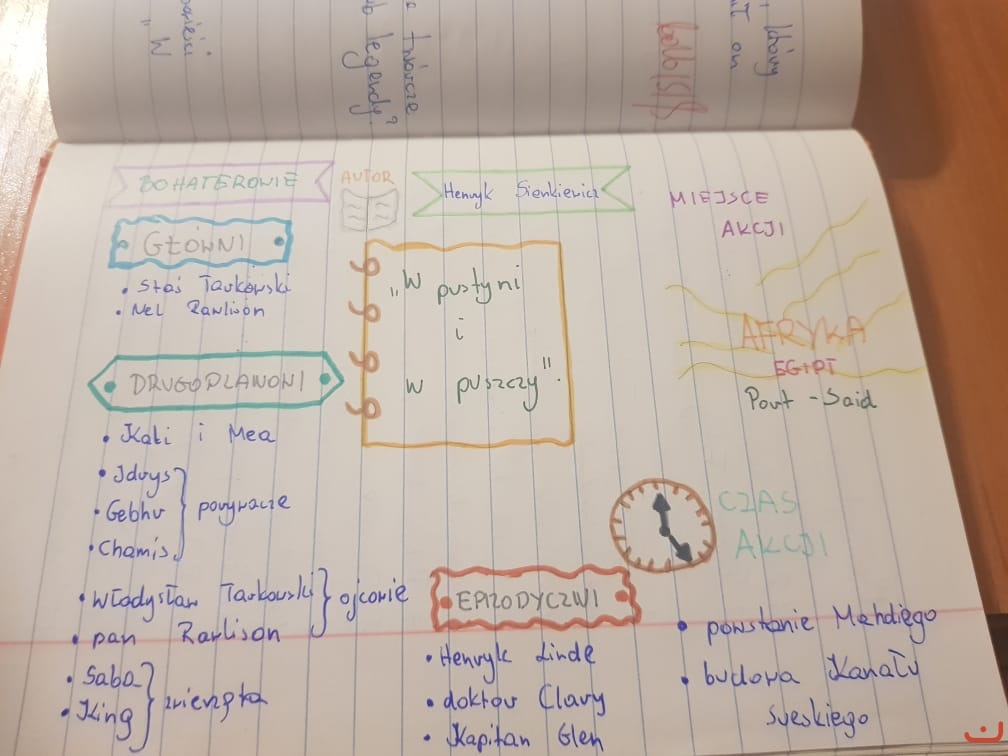 który
on
twórcze
legendy?
"W
BOHATEROWIE
AUTOR
Henryk Sienkiewicz
MIEJSCE
AKCJI
GŁÓWNI
• Staś Tarkowski
• Nel Rawlison
"W pustyni
i
w puszczy".
AFRYKA
EGIPT
Port - Said
DRUGOPLANOWI
• Kali i Mea
• Idrys
• Gebhr
• Chamis
porywacze
CZAS
AKCJI
• Władysław Tarkowski
• pan Rawlison
ojcowie
• Saba
• King
zwierzęta
EPIZODYCZNI
• Henryk Linde
• doktor Clary
• Kapitan Glen
• powstanie Mahdiego
• budowa Kanału
Sueskiego